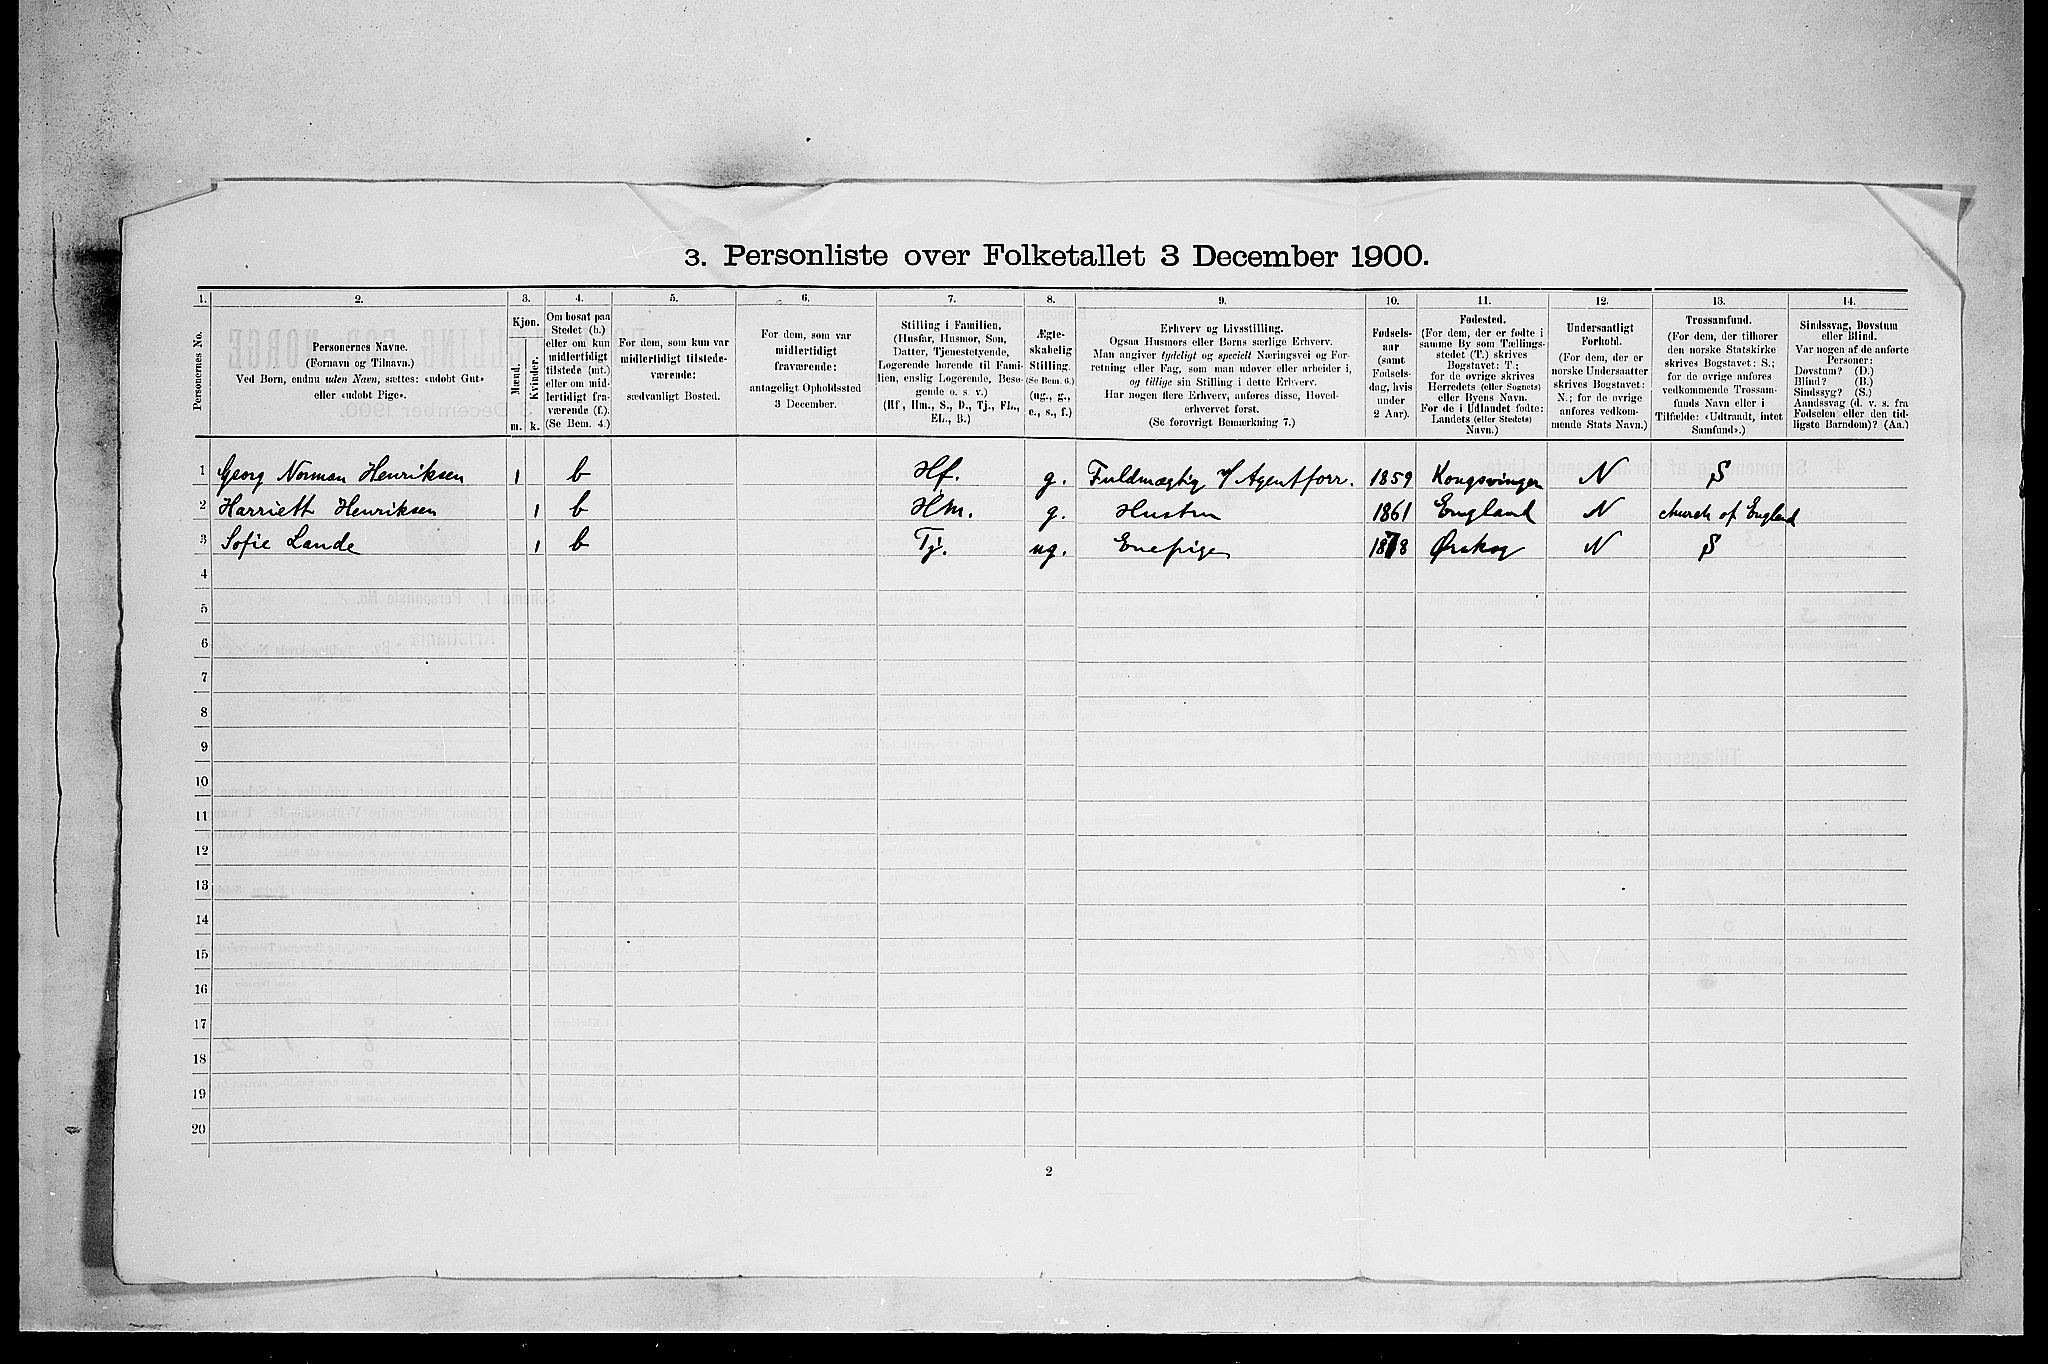 3. Personliste over Folketallet 3 December 1900.
1. 2. 3. 4. 5. 6. 7. 8. 9. 10. 11. 12. 13. 14.
Personernes No.
Personernes Navne.
(Fornavn og Tilnavn.)
Ved Børn, endnu uden Navn, sættes: «udøbt Gut»
eller «udøbt Pige».
Kjøn.
Mænd.
Kvinder.
m. k.
Om bosat paa
Stedet (b.)
eller om kun
midlertidigt
tilstede (mt.)
eller om mid-
lertidigt fra-
værende (f.).
(Se Bem. 4.)
For dem, som kun var
midlertidigt tilstede-
værende:
sædvanligt Bosted.
For dem, som var
midlertidigt
fraværende:
antageligt Opholdssted
3 December.
Stilling i Familien.
(Husfar, Husmor, Søn,
Datter, Tjenestetyende,
Logerende hørende til Fami-
lien, enslig Logerende, Besø-
gende o. s. v.)
(Hf, Hm., S., D., Tj., FL.,
EL., B.)
Ægte-
skabelig
Stilling.
(Se Bem. 6.)
(ug., g.,
e., s., f.)
Erhverv og Livsstilling.
Ogsaa Husmors eller Børns særlige Erhverv.
Man angiver tydeligt og specielt Næringsvei og For-
retning eller Fag, som man udøver eller arbeider i,
og tillige sin Stilling i dette Erhverv.
Har nogen flere Erhverv, anføres disse, Hoved-
erhvervet først.
(Se forøvrigt Bemærkning 7.)
Fødsels-
aar
(samt
Fødsels-
dag, hvis
under
2 Aar).
Fødested.
(For dem, der er fødte i
samme By som Tællings-
stedet (T.) skrives
Bogstavet: T.;
for de øvrige skrives
Herredets (eller Sognets)
eller Byens Navn.
For de i Udlandet fødte:
Landets (eller Stedets)
Navn.)
Undersaatligt
Forhold.
(For dem, der er
norske Undersaatter
skrives Bogstavet:
N.; for de øvrige
anføres vedkom-
mende Stats Navn.)
Trossamfund.
(For dem, der tilhører
den norske Statskirke
skrives Bogstavet: S.;
for de øvrige anføres
vedkommende Trossam-
funds Navn eller i
Tilfælde: «Udtraadt, intet
Samfund».)
Sindssvag, Døvstum
eller Blind.
Var nogen af de anførte
Personer:
Døvstum? (D.)
Blind? (B.)
Sindssyg? (S.)
Aandssvag (d. v. s. fra
Fødselen eller den tid-
ligste Barndom)? (Aa.)
1 Georg Norman Henriksen 1 b Hf. g. Fuldmægtig v/ Agentforr. 1859 Kongsvinger N S
2 Harriett Henriksen 1 b Hm. g. Hustru 1861 England N church of England
3 Sofie Lande 1 b Tj. ug. Enepige 1878 Ørskog N S
4
5
6
7
8
9
10
11
12
13
14
15
16
17
18
19
20
2